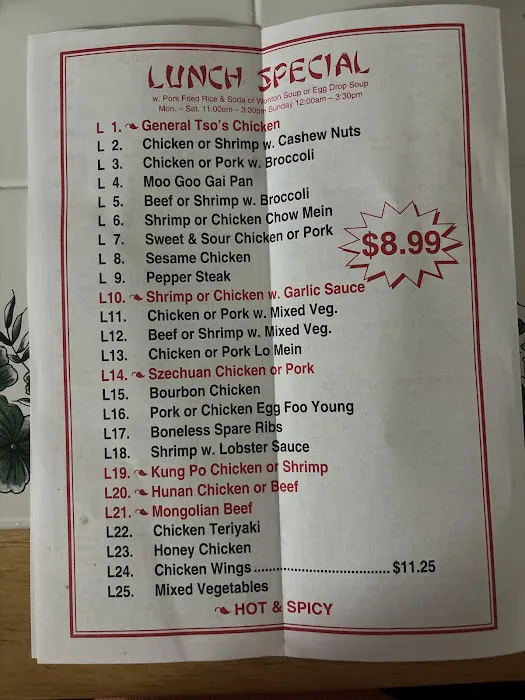 LUNCH SPECIAL
w. Pork Fried Rice & Soda or Wonton Soup or Egg Drop Soup
Mon. – Sat. 11:00am – 3:30pm Sunday 12:00am – 3:30pm
L 1. General Tso's Chicken
L 2. Chicken or Shrimp w. Cashew Nuts
L 3. Chicken or Pork w. Broccoli
L 4. Moo Goo Gai Pan
L 5. Beef or Shrimp w. Broccoli
L 6. Shrimp or Chicken Chow Mein
L 7. Sweet & Sour Chicken or Pork
$8.99
L 8. Sesame Chicken
L 9. Pepper Steak
L10. Shrimp or Chicken w. Garlic Sauce
L11. Chicken or Pork w. Mixed Veg.
L12. Beef or Shrimp w. Mixed Veg.
L13. Chicken or Pork Lo Mein
L14. Szechuan Chicken or Pork
L15. Bourbon Chicken
L16. Pork or Chicken Egg Foo Young
L17. Boneless Spare Ribs
L18. Shrimp w. Lobster Sauce
L19. Kung Po Chicken or Shrimp
L20. Hunan Chicken or Beef
L21. Mongolian Beef
L22. Chicken Teriyaki
L23. Honey Chicken
L24. Chicken Wings .................................. $11.25
L25. Mixed Vegetables
HOT & SPICY